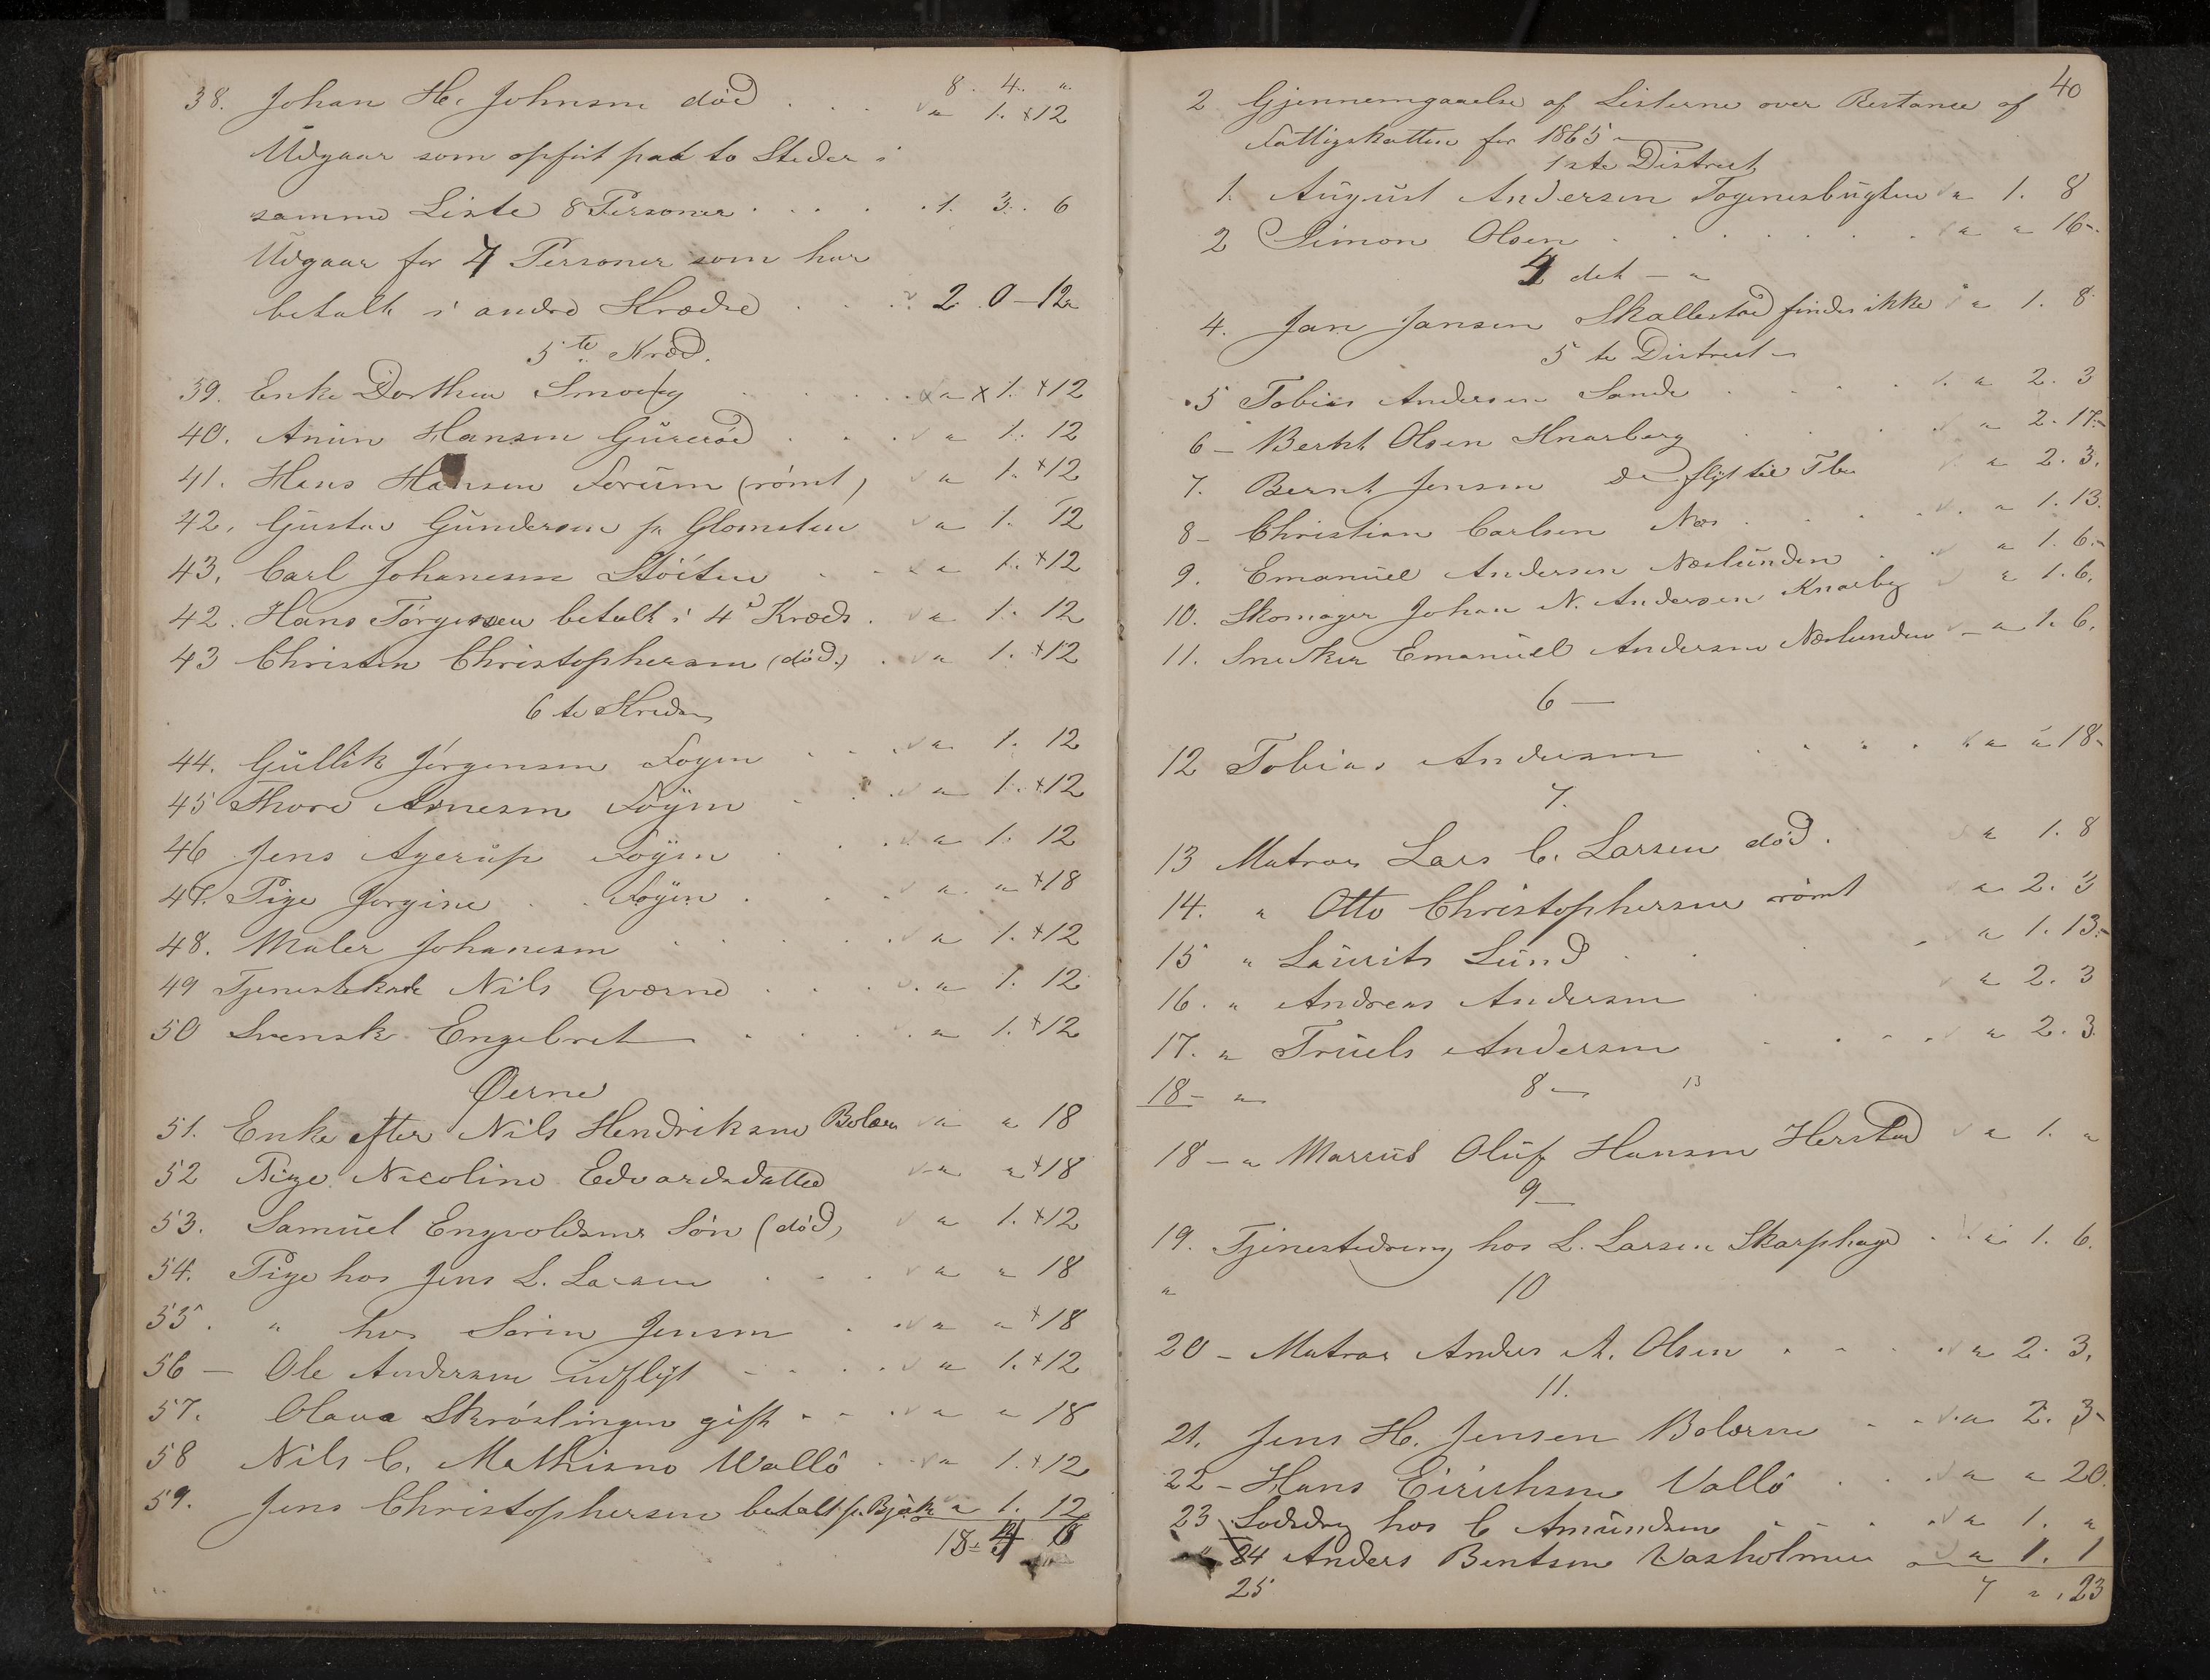 8. 4. "
38. Johan H. Johnsen død . . . " 1. +12
Udgaar som opført paa to Steder i
samme Liste 8 Personer . . . . 1. 3. 6
Udgaar for 7 Personer som har
betalt i andre Kredse . . . 2. 0-12
5te Kred.
39. Enke Dorthea . . . " x 1. +12
40. Anun Hansen . . . " 1. 12
41. Hans Hansen Sorum (rømt) " 1. +12
42. Gustav Gundersen " 1. 12
43. Carl Johanesen Støiten . . " 1. +12
42. Hans Jørgensen betalt i 4d Kreds . " 1. 12
43 Christen Christophersen (død.) . " 1. +12
6te Kreds
44. Gullik Jørgensen Foyn . . . " 1. 12
45 Thore Arnesen Föyn . . . " 1. +12
46 Jens Agerup Föyn . . . " 1. 12
47. Pige Jorgine . . Föyn . . . " " +18
48. Maler Johanesen . . . . " 1. +12
49 Tjenestekarl Nils Qværne . . . " 1. 12
50 Svensk Engebret . . . . " 1. +12
Øerne
51. Enke efter Nils Hendriksen Bolærn " " 18
52 Pige Nicoline Edvardsdatter " " +18
53. Samuel Engvoldsens Søn (død) " 1. +12
54. Pige hos Jens L. Larsen . . . " " 18
55. " hos Sørin Jensen . . " " +18
56 - Ole Andersen udflyt - . . . " 1. +12
57. Olava gift . . . " " 18
58 Nils C. Mathisens Vallö . . " 1. +12
59. Jens Christophersen betalt " 1. 12
18. 4 18
40
2 Gjennemgaaelse af Listerne over Restance af
Fattigskatten for 1865 -
1ste District
1. August Andersen Togenesbugten " 1. 8
2 Simon Olsen . . . . . . " " 16-
4 det - "
4. Jan Jansen Skallestad findes ikke " 1. 8
5te District -
5 Tobias Andersen Sande . . . . " 2. 3
6 - Bernt Olsen Knarberg . . . . " 2. 17-
7. Bernt Jensen flyt til " 2. 3.
8 - Christian Carlsen Nes . . . . " 1. 13.
9. Emanuel Andersen Neslunden . . " 1. 6.-
10. Skomager Johan N. Andersen Knarbg " 1. 6.
11. Snedker Emanuel Andersen Neslunden - " 1. 6.
6 -
12 Tobias Andersen . . . . " " 18-
7.
13 Matros Lars C. Larsen død . " 1. 8
14. " Otto Christophersen rømt " 2. 3
15 " Laurits Lund . . - " 1. 13.-
16. " Andreas Andersen . " 2. 3
17. " Truels Andersen . . . . " 2. 3.
18 - " 8 - 13
18 - " Marcus Oluf Hansen Herstad " 1. "
9 -
19. Tjenestedreng hos L. Larsen Skarphage . " 1. 6.
" 10
20 - Matros Anders A. Olsen . . . . " 2. 3.
11.
21. Jens H. Jensen Bolærne . . " 2. 3-
22 - Hans Eirichsen Vallö . . . " " 20.
23 Lodsdrg hos C Amundsen . . . . " 1. "
24 Anders Bentsen Vasholmen " 1. 1
25 7 " . 23